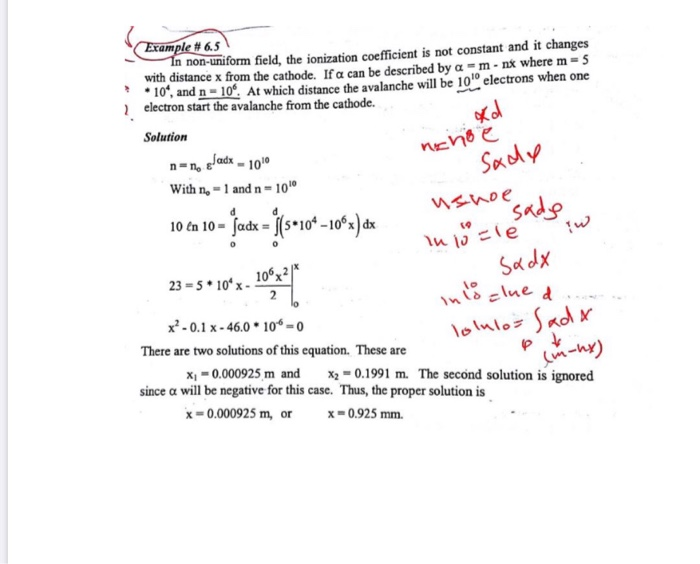 Example # 6.5
In non-uniform field, the ionization coefficient is not constant and it changes
with distance x from the cathode. If α can be described by α = m - nx where m = 5
* 10⁴, and n = 10⁶. At which distance the avalanche will be 10¹⁰ electrons when one
electron start the avalanche from the cathode.
αd
n=noe
Solution
Sαdx
n = nₒ ε^∫αdx = 10¹⁰
With nₒ = 1 and n = 10¹⁰
n=noe
10 ℓn 10 = ∫₀ᵈ αdx = ∫₀ᵈ (5*10⁴ -10⁶x) dx
ln 10¹⁰ = 1e
Sαdx
23 = 5 * 10⁴ x - 10⁶x²/2 |₀ˣ
ln 10¹⁰ = lne
x² - 0.1 x - 46.0 * 10⁻⁶ = 0
10ln10= ∫αdx
(m-nx)
There are two solutions of this equation. These are
x₁ = 0.000925 m and x₂ = 0.1991 m. The second solution is ignored
since α will be negative for this case. Thus, the proper solution is
x = 0.000925 m, or x = 0.925 mm.